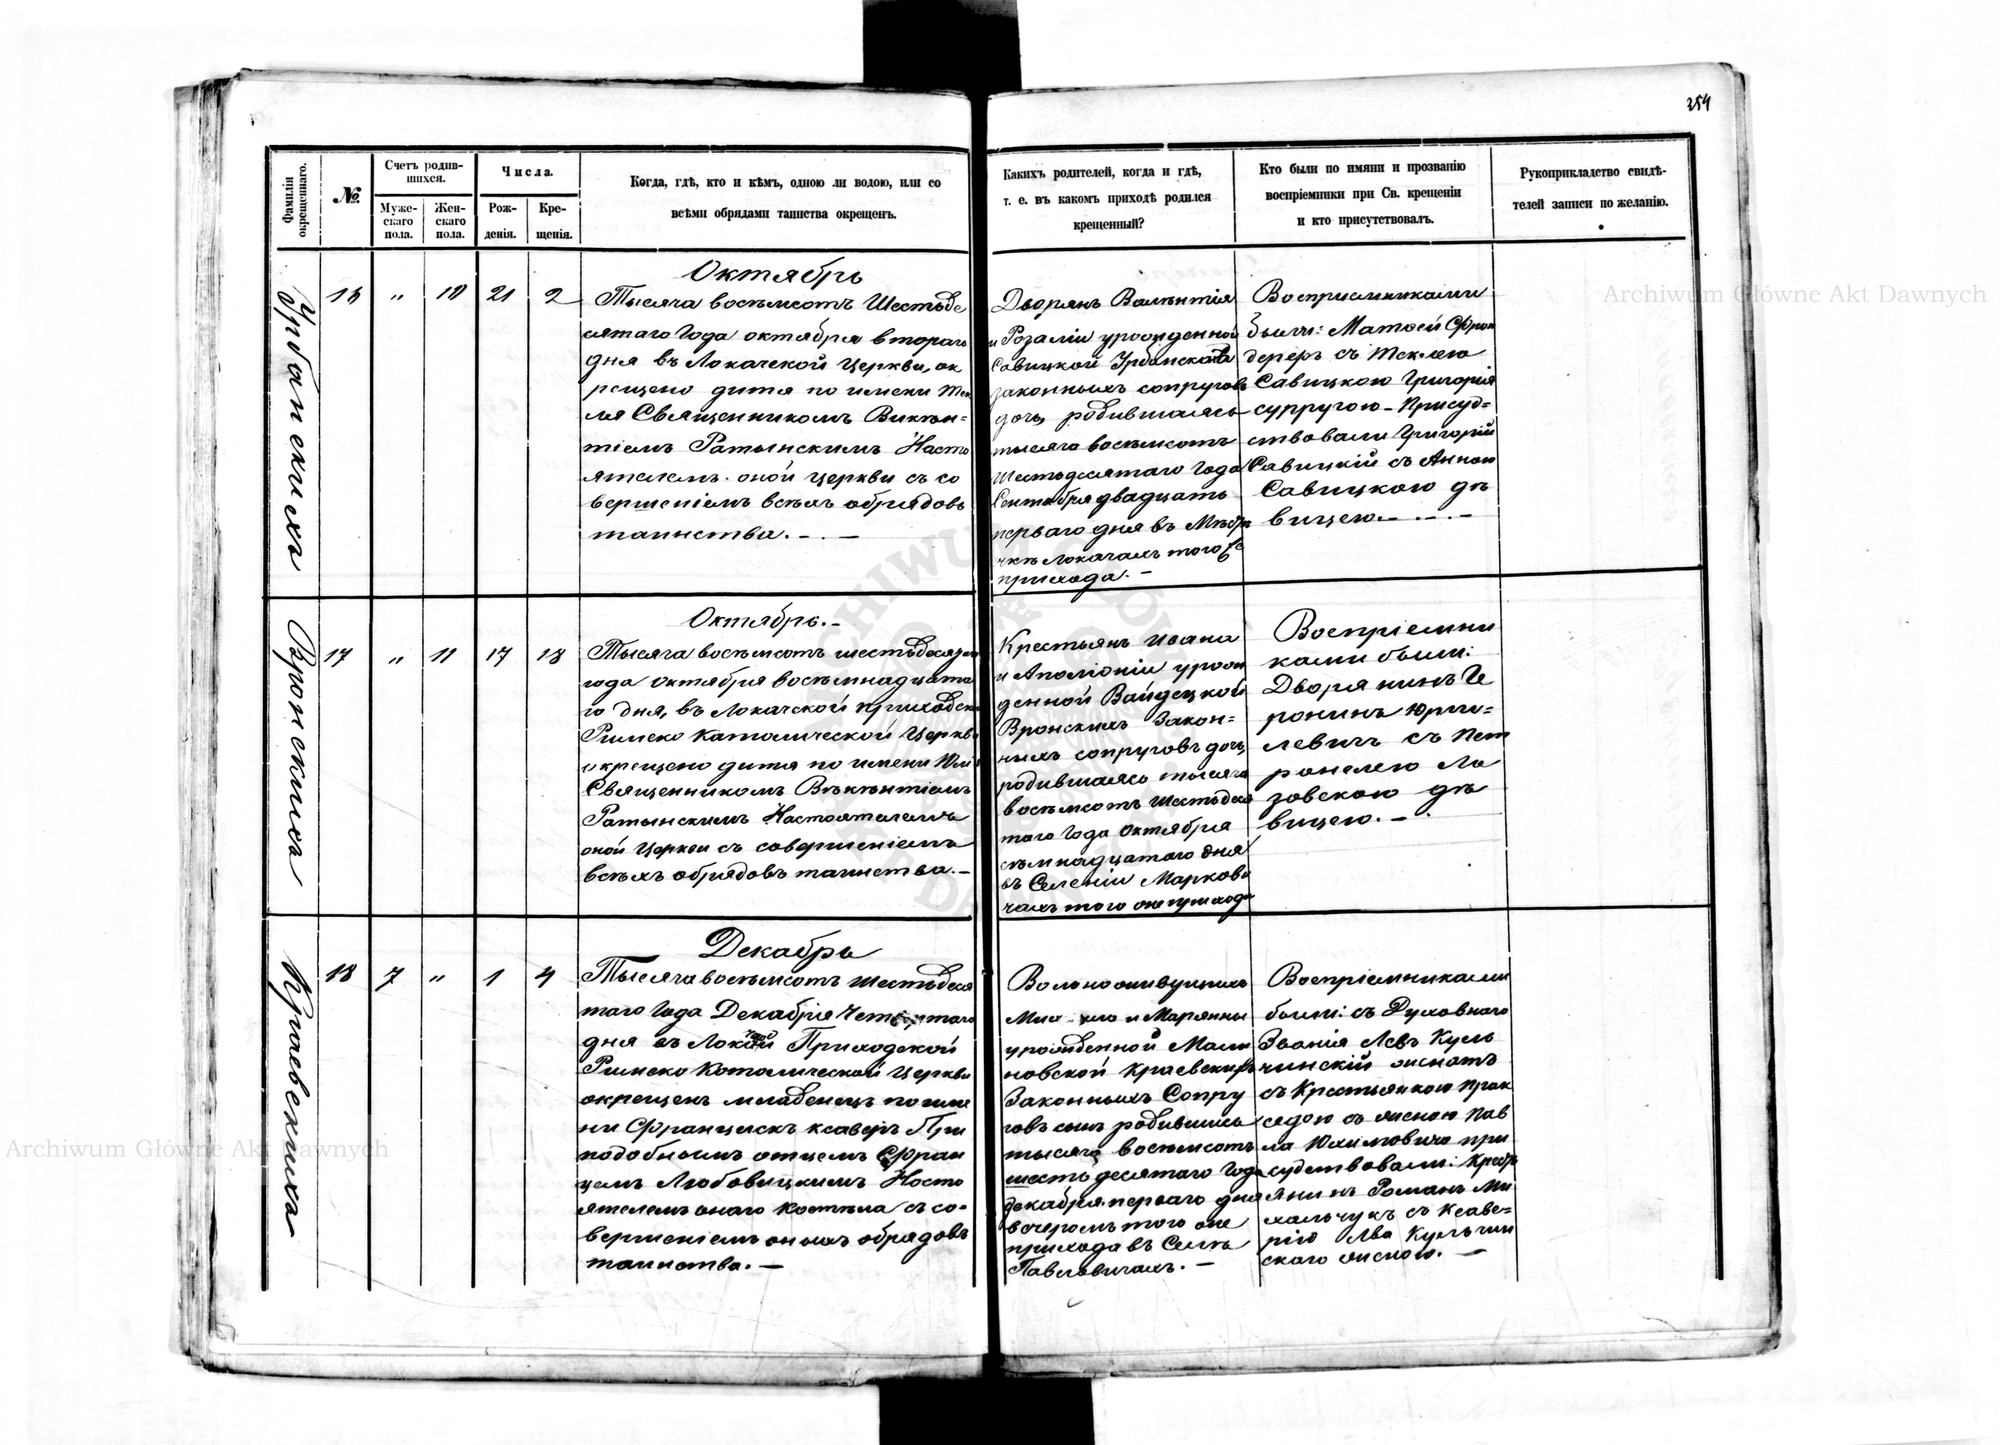 254
Фамилія окрещеннаго.
№
Счетъ родив-
шихся.
Муже-
скаго
пола.
Жен-
скаго
пола.
Числа.
Рож-
денія.
Кре-
щенія.
Когда, гдѣ, кто и кѣмъ, одною ли водою, или со
всѣми обрядами таинства окрещенъ.
Какихъ родителей, когда и гдѣ,
т. е. въ какомъ приходѣ родился
крещенный?
Кто были по имяни и прозванію
воспріемники при Св. крещеніи
и кто присутствовалъ.
Рукоприкладство свидѣ-
телей записи по желанію.
Урбанскихъ
16 „ 10 21 2
Октябрь
Тысяча восѣмсотъ Шестьде
сятаго Года октября втораго
дня въ Локачской Церкви, ок
рещено дитя по имени Тек
ля Священникомъ Викѣн-
тіемъ Ратынскимъ Насто
ятелемъ оной Церкви съ со
вершеніемъ всѣхъ обрядовъ
таинства. - . —
Дворянъ Валѣнтія
и Розаліи урожденной
Савицкой Урбанскихъ
законныхъ сопруговъ
дочь, родившаясь
тысяча восѣмсотъ
Шестьдесятаго Года
Сентября двадцать
перваго дня въ Мѣсте
чкѣ Локачахъ того же
прихода. —
Восприемниками
были: Матѳей
деперъ съ Теклею
Савицкою Григорія
супругою - Присуд=
ствовали Григорій
Савицкій съ Анною
Савицкою дѣ
вицею. - . - . -
Вронскиха
17 „ 11 17 18
Октябрь. -
Тысяча восѣмсотъ шестьдесятаго
года Октября восѣмнадцата
го дня, въ Локачской приходской
Римско Католической Церкви
окрещено дитя по имени Юлія
Священникомъ Вѣкѣнтіемъ
Ратынскимъ Настоятелемъ
оной Церкви съ совершеніемъ
всѣхъ обрядовъ таинства. -
Крестьянъ Ивана
и Аполіоніи урож
денной Вайдецкой
Вронскихъ Закон=
ныхъ сопруговъ дочь,
родившаясь тысяча
восѣмсотъ Шестьдеся
таго Года Октября
сѣмнадцатаго дня
въ Селеніи Маркови
чахъ того же прихода
Воспріемни
ками были:
Дворянинъ Ге
ронимъ Юрги=
левичъ съ Пет
ронелею Ла
зовскою дѣ
вицею. - .
Краевскиха
18 7 „ 1 4
Декабрь
Тысяча восѣмсотъ шестьдеся
таго Года Декабрія Четвертаго
дня въ Локачской Приходской
Римско Католической Церкви
окрещенъ младенецъ по име
ни Францискъ Ксаверъ При
подобнымъ отцемъ Фран
цемъ Любовицкимъ Насто
ятелемъ онаго Костѣла съ со-
вершеніемъ оныхъ обрядовъ
таинства. —
Вольноживущихъ
и Марянны
урожденной Мали
новской Краевскихъ
Законныхъ Сопру
говъ сынъ родившись
тысяча восѣмсотъ
шестьдесятаго Года
декабря перваго дня
вечеромъ того же
прихода въ Селѣ
Павловичахъ. —
Воспріемниками
были: съ Духовнаго
Званія Левъ Куль
чинскій женатъ
съ Крестьянкою Прак
седою съ женою Пав
ла Юхимовича при
судствовали: Крест
янинъ Романъ Ми
хальчукъ съ Ксаве=
рію Лва Кульчин
скаго женою. —
Archiwum Główne Akt Dawnych
Archiwum Główne Akt Dawnych